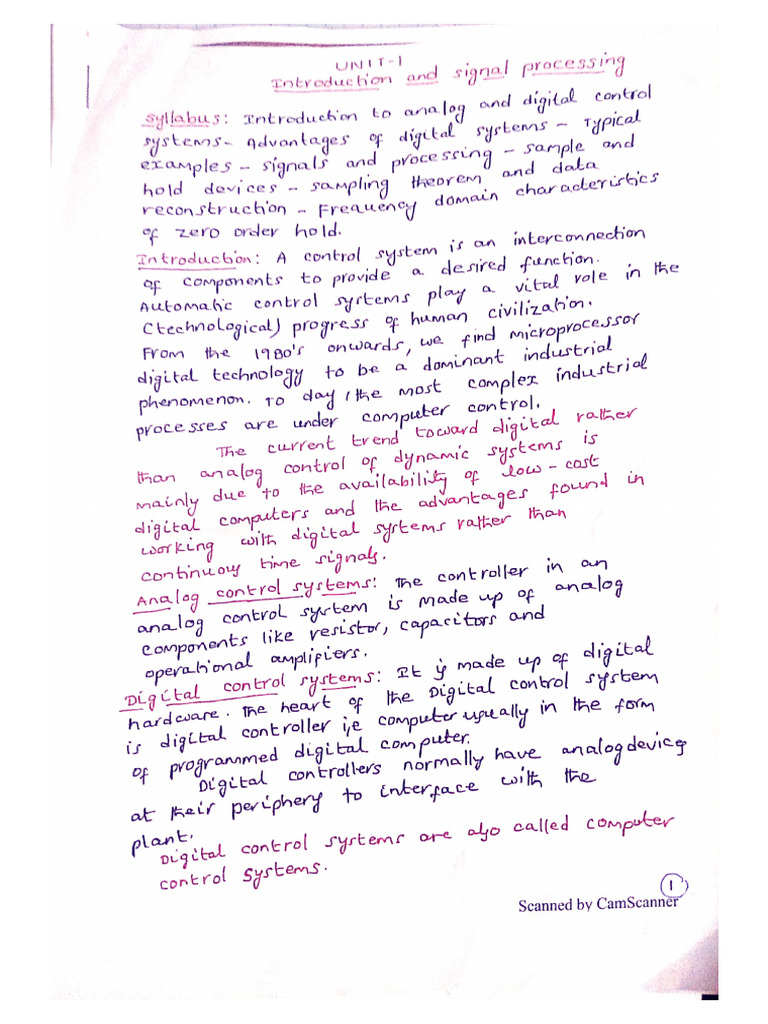 UNIT-1
Introduction and signal processing
Syllabus: Introduction to analog and digital control
systems- Advantages of digital systems - Typical
examples - signals and processing - sample and
hold devices - sampling theorem and data
reconstruction - Frequency domain characteristics
of zero order hold.
Introduction: A control system is an interconnection
of components to provide a desired function.
Automatic control systems play a vital role in the
(technological) progress of human civilization.
From the 1980's onwards, we find microprocessor
digital technology to be a dominant industrial
phenomenon. To day, the most complex industrial
processes are under computer control.
The current trend toward digital rather
than analog control of dynamic systems is
mainly due to the availability of low-cost
digital computers and the advantages found in
working with digital systems rather than
continuous time signals.
Analog control systems: The controller in an
analog control system is made up of analog
components like resistor, capacitors and
operational amplifiers.
Digital control systems: It is made up of digital
hardware. The heart of the Digital control system
is digital controller i,e computer usually in the form
of programmed digital computer.
Digital controllers normally have analog devices
at their periphery to interface with the
plant.
Digital control systems are also called computer
control systems.
1
Scanned by CamScanner